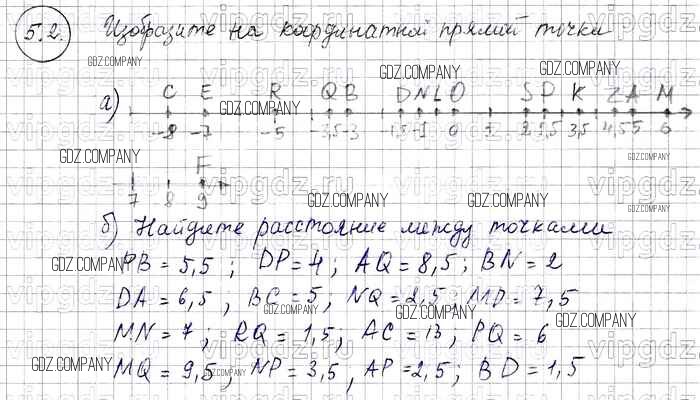 5.2. Изобразите на координатной прямой точки
GDZ.COMPANY
GDZ.COMPANY
GDZ.COMPANY
а) C E R Q B D N L O S P K Z A M
GDZ.COMPANY
-8 -7 -5 -3,5 -3 -1,5 -1 0 1 2 2,5 3,5 4,5 5 6
GDZ.COMPANY
GDZ.COMPANY
F
7 8 9
GDZ.COMPANY
GDZ.COMPANY
GDZ.COMPANY
б) Найдите расстояние между точками
GDZ.COMPANY
PB = 5,5 ; DP = 4 ; AQ = 8,5 ; BN = 2
DA = 6,5 ; BC = 5 , NQ = 2,5 ; MD = 7,5
GDZ.COMPANY
GDZ.COMPANY
GDZ.COMPANY
MN = 7 ; RQ = 1,5 ; AC = 13 , PQ = 6
GDZ.COMPANY
MQ = 9,5 , NP = 3,5 , AP = 2,5 ; BD = 1,5
GDZ.COMPANY
vipgdz.ru